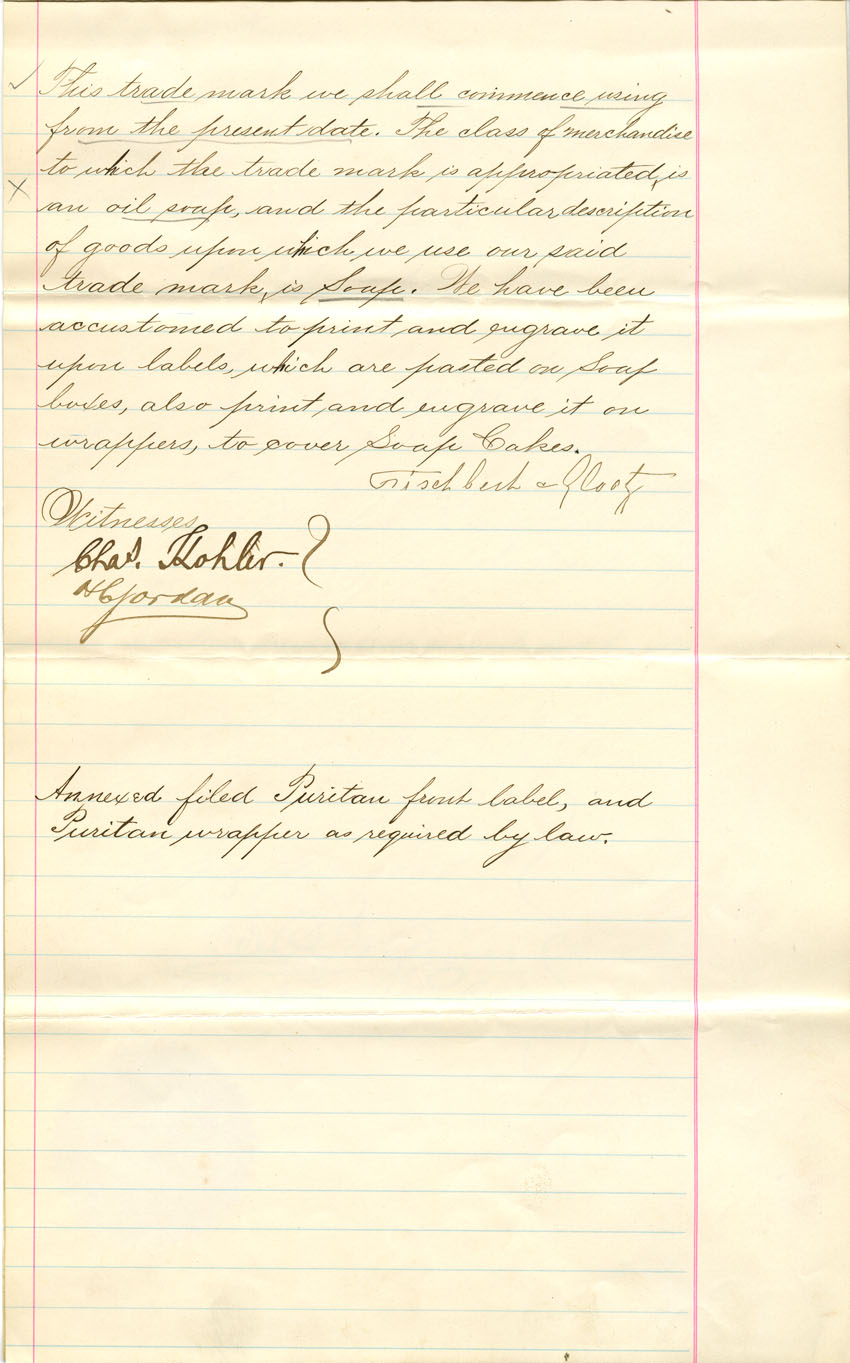 This trade mark we shall commence using
from the present date. The class of merchandise
to which the trade mark is appropriated, is
an oil soap, and the particular description
of goods upon which we use our said
trade mark, is Soap. We have been
accustomed to print, and engrave it
upon labels, which are pasted on Soap
boxes, also print, and engrave it on
wrappers, to cover Soap Cakes.
&
Witnesses
Chas. Kohler.
H C Jordan
Annexed filed Puritan front label, and
Puritan wrapper as required by law.